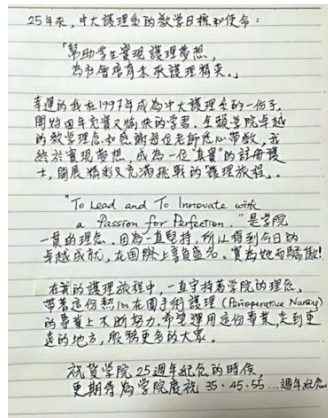 25年來，中大護理系的教學目標和使命：
「幫助學生實現護理夢想，
為社會培育未來護理精英。」
幸運的我在1997年成為中大護理系的一份子，
開始四年充實又愉快的學習。全賴學院卓越
的教學理念和感謝每位老師悉心帶教，我
終於實現夢想，成為一位"真實"的註冊護
士，開展精彩又充滿挑戰的護理旅程。
"To Lead and To Innovate with
a Passion for Perfection." 是學院
一貫的理念。因為一直堅持，所以得到今日的
卓越成就，在國際上享負盛名，實為她而驕傲！
在我的護理旅程中，一直守持着學院的理念，
帶着這份熱心在圍手術護理 (Perioperative Nursing)
的專業上不斷努力。希望運用這份專業，走到更
遠的地方，服務更多的大眾。
祝賀學院25週年紀念的時候，
更期待為學院慶祝 35、45、55…週年紀念